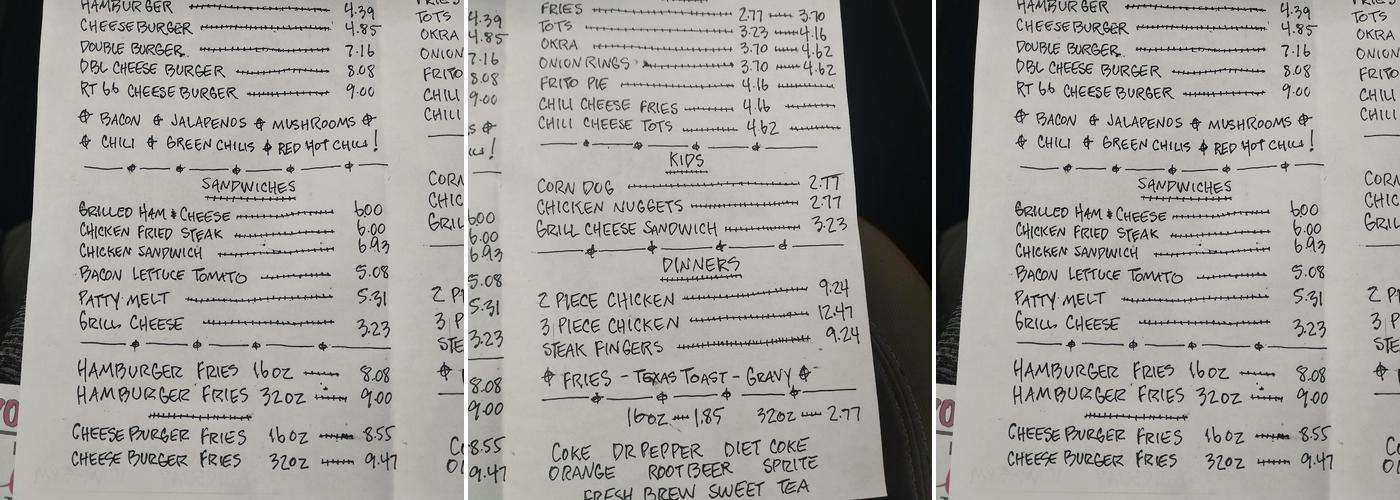 HAMBURGER 4.39
CHEESEBURGER 4.85
DOUBLE BURGER 7.16
DBL CHEESE BURGER 8.08
RT 66 CHEESE BURGER 9.00
BACON JALAPENOS MUSHROOMS
CHILI GREEN CHILIS RED HOT CHILIS!
SANDWICHES
GRILLED HAM & CHEESE 600
CHICKEN FRIED STEAK 6.00
CHICKEN SANDWICH 6.93
BACON LETTUCE TOMATO 5.08
PATTY MELT 5.31
GRILL CHEESE 3.23
HAMBURGER FRIES 16oz 8.08
HAMBURGER FRIES 32oz 9.00
CHEESE BURGER FRIES 16oz 8.55
CHEESE BURGER FRIES 32oz 9.47
TOTS
OKRA
ONION
FRITO
CHILI
CHILI
CORN
CHIC
GRILL
2 PI
3 P
STE
4.39
4.85
7.16
8.08
9.00
600
6.00
6.93
5.08
5.31
3.23
8.08
9.00
8.55
9.47
FRIES 2.77 3.70
TOTS 3.23 4.16
OKRA 3.70 4.62
ONION RINGS 3.70 4.62
FRITO PIE 4.16
CHILI CHEESE FRIES 4.16
CHILI CHEESE TOTS 4.62
KIDS
CORN DOG 2.77
CHICKEN NUGGETS 2.77
GRILL CHEESE SANDWICH 3.23
DINNERS
2 PIECE CHICKEN 9.24
3 PIECE CHICKEN 12.47
STEAK FINGERS 9.24
FRIES - TEXAS TOAST - GRAVY
16oz 1.85 32oz 2.77
COKE DR PEPPER DIET COKE
ORANGE ROOTBEER SPRITE
FRESH BREW SWEET TEA
HAMBURGER 4.39
CHEESEBURGER 4.85
DOUBLE BURGER 7.16
DBL CHEESE BURGER 8.08
RT 66 CHEESE BURGER 9.00
BACON JALAPENOS MUSHROOMS
CHILI GREEN CHILIS RED HOT CHILIS!
SANDWICHES
GRILLED HAM & CHEESE 600
CHICKEN FRIED STEAK 6.00
CHICKEN SANDWICH 6.93
BACON LETTUCE TOMATO 5.08
PATTY MELT 5.31
GRILL CHEESE 3.23
HAMBURGER FRIES 16oz 8.08
HAMBURGER FRIES 32oz 9.00
CHEESE BURGER FRIES 16oz 8.55
CHEESE BURGER FRIES 32oz 9.47
TOTS
OKRA
ONION
FRITO
CHILI
CHILI
CORN
CHIC
GRILL
2 P
3 P
STE